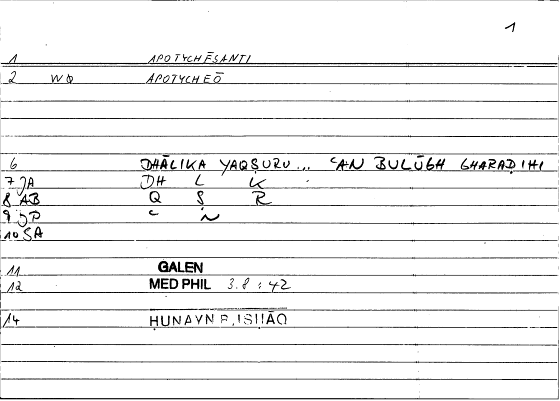 1
1 APOTYCHĒSANTI
2 WQ APOTYCHEŌ
6 DHĀLIKA YAQṢURU... ʿAN BULŪGH GHARAḌIHI
7 JA DH L K
8 AB Q Ṣ R
9 JP ʿ N
10 SA
11 GALEN
12 MED PHIL 3.8 : 42
14 ḤUNAYN B. ISḤĀQ